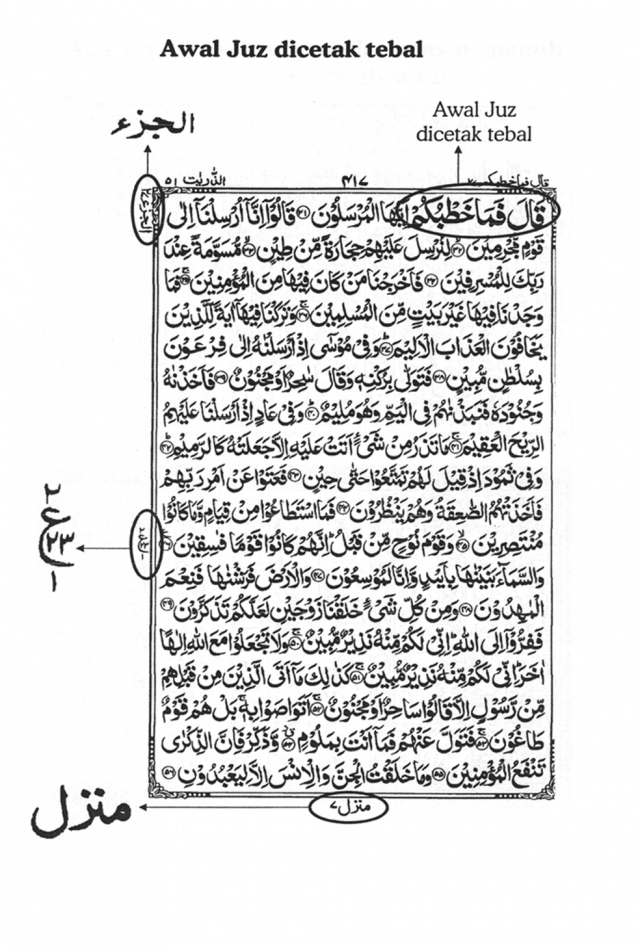 Awal Juz dicetak tebal
الجزء
Awal Juz
dicetak tebal
قال فما خطبكم ٢٧
٤١٧
الذّٰریٰت ٥١
قَالَ فَمَا خَطْبُكُمْ اَيُّهَا الْمُرْسَلُوْنَ ﴿٣١﴾ قَالُوْٓا اِنَّآ اُرْسِلْنَآ اِلٰى
قَوْمٍ مُّجْرِمِيْنَ ﴿٣٢﴾ لِنُرْسِلَ عَلَيْهِمْ حِجَارَةً مِّنْ طِيْنٍ ﴿٣٣﴾ مُّسَوَّمَةً عِنْدَ
رَبِّكَ لِلْمُسْرِفِيْنَ ﴿٣٤﴾ فَاَخْرَجْنَا مَنْ كَانَ فِيْهَا مِنَ الْمُؤْمِنِيْنَ ﴿٣٥﴾ فَمَا
وَجَدْنَا فِيْهَا غَيْرَ بَيْتٍ مِّنَ الْمُسْلِمِيْنَ ﴿٣٦﴾ وَتَرَكْنَا فِيْهَآ اٰيَةً لِّلَّذِيْنَ
يَخَافُوْنَ الْعَذَابَ الْاَلِيْمَ ﴿٣٧﴾ وَفِيْ مُوْسٰٓى اِذْ اَرْسَلْنٰهُ اِلٰى فِرْعَوْنَ
بِسُلْطٰنٍ مُّبِيْنٍ ﴿٣٨﴾ فَتَوَلّٰى بِرُكْنِهٖ وَقَالَ سٰحِرٌ اَوْ مَجْنُوْنٌ ﴿٣٩﴾ فَاَخَذْنٰهُ
وَجُنُوْدَهٗ فَنَبَذْنٰهُمْ فِي الْيَمِّ وَهُوَ مُلِيْمٌ ﴿٤٠﴾ وَفِيْ عَادٍ اِذْ اَرْسَلْنَا عَلَيْهِمُ
الرِّيْحَ الْعَقِيْمَ ﴿٤١﴾ مَا تَذَرُ مِنْ شَيْءٍ اَتَتْ عَلَيْهِ اِلَّا جَعَلَتْهُ كَالرَّمِيْمِ ﴿٤٢﴾
وَفِيْ ثَمُوْدَ اِذْ قِيْلَ لَهُمْ تَمَتَّعُوْا حَتّٰى حِيْنٍ ﴿٤٣﴾ فَعَتَوْا عَنْ اَمْرِ رَبِّهِمْ
فَاَخَذَتْهُمُ الصّٰعِقَةُ وَهُمْ يَنْظُرُوْنَ ﴿٤٤﴾ فَمَا اسْتَطَاعُوْا مِنْ قِيَامٍ وَّمَا كَانُوْا
مُنْتَصِرِيْنَ ﴿٤٥﴾ وَقَوْمَ نُوْحٍ مِّنْ قَبْلُ اِنَّهُمْ كَانُوْا قَوْمًا فٰسِقِيْنَ ﴿٤٦﴾
وَالسَّمَآءَ بَنَيْنٰهَا بِاَيْىدٍ وَّاِنَّا لَمُوْسِعُوْنَ ﴿٤٧﴾ وَالْاَرْضَ فَرَشْنٰهَا فَنِعْمَ
الْمٰهِدُوْنَ ﴿٤٨﴾ وَمِنْ كُلِّ شَيْءٍ خَلَقْنَا زَوْجَيْنِ لَعَلَّكُمْ تَذَكَّرُوْنَ ﴿٤٩﴾
فَفِرُّوْٓا اِلَى اللّٰهِ اِنِّيْ لَكُمْ مِّنْهُ نَذِيْرٌ مُّبِيْنٌ ﴿٥٠﴾ وَلَا تَجْعَلُوْا مَعَ اللّٰهِ اِلٰهًا
اٰخَرَ اِنِّيْ لَكُمْ مِّنْهُ نَذِيْرٌ مُّبِيْنٌ ﴿٥١﴾ كَذٰلِكَ مَآ اَتَى الَّذِيْنَ مِنْ قَبْلِهِمْ
مِّنْ رَّسُوْلٍ اِلَّا قَالُوْا سَاحِرٌ اَوْ مَجْنُوْنٌ ﴿٥٢﴾ اَتَوَاصَوْا بِهٖ بَلْ هُمْ قَوْمٌ
طَاغُوْنَ ﴿٥٣﴾ فَتَوَلَّ عَنْهُمْ فَمَآ اَنْتَ بِمَلُوْمٍ ﴿٥٤﴾ وَّذَكِّرْ فَاِنَّ الذِّكْرٰى
تَنْفَعُ الْمُؤْمِنِيْنَ ﴿٥٥﴾ وَمَا خَلَقْتُ الْجِنَّ وَالْاِنْسَ اِلَّا لِيَعْبُدُوْنِ ﴿٥٦﴾
٢
ع
٢٣
١
منزل ٧
منزل